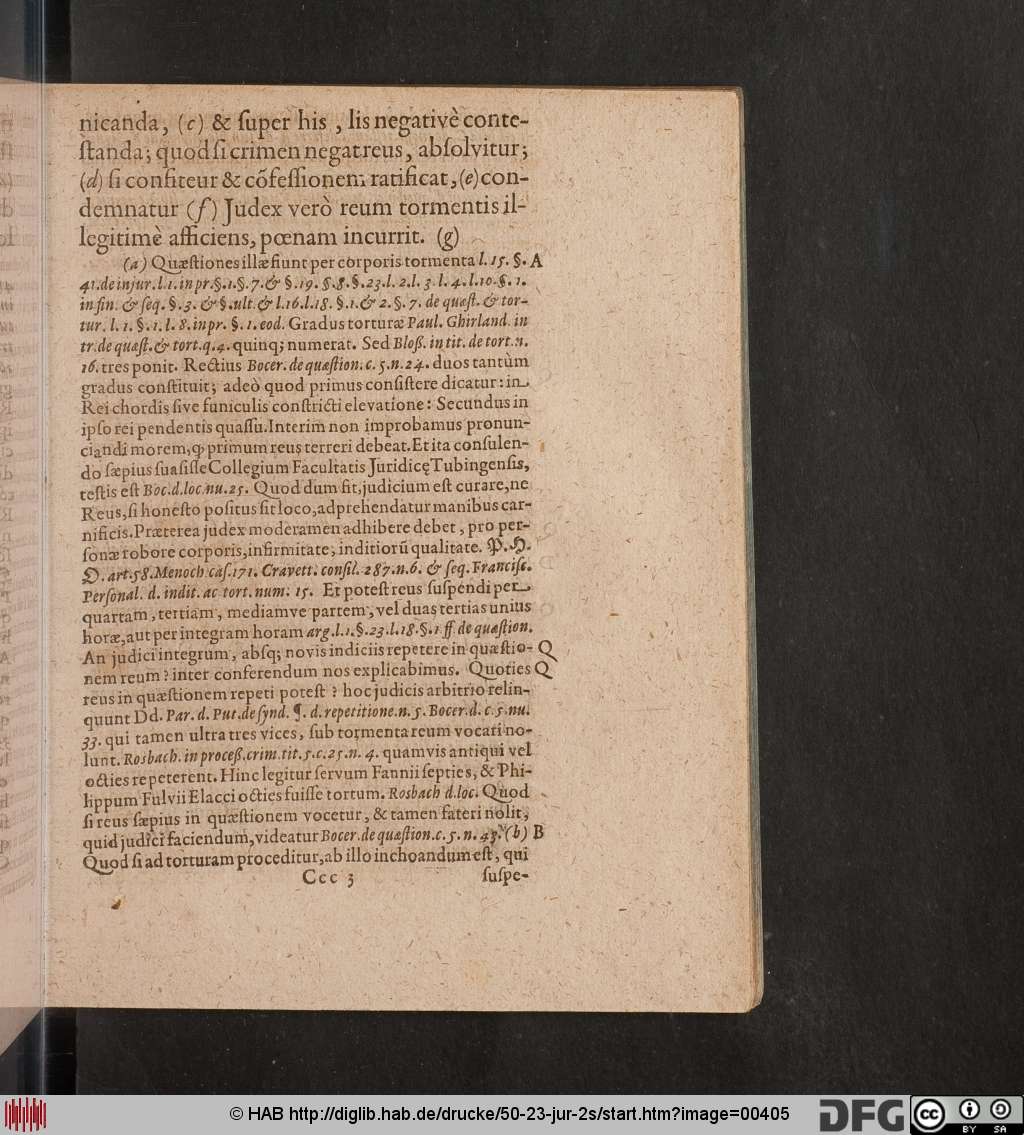 nicanda, (c) & ſuper his , lis negativè conte-
ſtanda; quod ſi crimen negat reus, abſolvitur;
(d) ſi confiteur & cõfeſſionem ratificat, (e) con-
demnatur (f) Judex verò reum tormentis il-
legitimè afficiens, pœnam incurrit. (g)
(a) Quæſtiones illæ fiunt per corporis tormenta l. 15. §. A
41. de injur. l. 1. in pr. §. 1. §. 7. & §. 19. §. 8. §. 23. l. 2. l. 3. l. 4. l. 10. §. 1.
in fin. & ſeq. §. 3. & §. ult. & l. 16. l. 18. §. 1. & 2. §. 7. de quæſt. & tor-
tur. l. 1. §. 1. l. 8. in pr. §. 1. eod. Gradus torturæ Paul. Ghirland. in
tr. de quæſt. & tort. q. 4. quinq; numerat. Sed Bloß. in tit. de tort. n.
16. tres ponit. Rectius Bocer. de quæſtion. c. 5. n. 24. duos tantùm
gradus conſtituit; adeò quod primus conſiſtere dicatur: in
Rei chordis ſive funiculis conſtricti elevatione: Secundus in
ipſo rei pendentis quaſſu. Interim non improbamus pronun-
ciandi morem, ꝙ primum reus terreri debeat. Et ita conſulen-
do ſæpius ſuaſiſſe Collegium Facultatis Juridicę Tubingenſis,
teſtis eſt Boc. d. loc. nu. 25. Quod dum fit, judicium eſt curare, ne
Reus, ſi honeſto poſitus ſit loco, adprehendatur manibus car-
nificis. Præterea judex moderamen adhibere debet, pro per-
ſonæ robore corporis, infirmitate, inditiorũ qualitate. P. H.
O. art. 58. Menoch. caſ. 171. Cravett. conſil. 287. n. 6. & ſeq. Franciſc.
Perſonal. d. indit. ac tort. num. 15. Et poteſt reus ſuſpendi per
quartam, tertiam, mediamve partem, vel duas tertias unius
horæ, aut per integram horam arg. l. 1. §. 23. l. 18. §. 1 ff. de quæſtion.
An judici integrum, abſq; novis indiciis repetere in quæſtio- Q
nem reum? inter conferendum nos explicabimus. Quoties Q
reus in quæſtionem repeti poteſt? hoc judicis arbitrio relin-
quunt Dd. Par. d. Put. de ſynd. ¶. d. repetitione. n. 5. Bocer. d. c. 5. nu.
33. qui tamen ultra tres vices, ſub tormenta reum vocari no-
lunt. Rosbach. in proceß. crim. tit. 5. c. 25. n. 4. quamvis antiqui vel
octies repeterent. Hinc legitur ſervum Fannii ſepties, & Phi-
lippum Fulvii Elacci octies fuiſſe tortum. Rosbach d. loc. Quod
ſi reus ſæpius in quæſtionem vocetur, & tamen fateri nolit,
quid judici faciendum, videatur Bocer. de quæſtion. c. 5. n. 43. (b) B
Quod ſi ad torturam proceditur, ab illo inchoandum eſt, qui
Ccc 3 ſuſpe-
© HAB http://diglib.hab.de/drucke/50-23-jur-2s/start.htm?image=00405 DFG cc BY SA